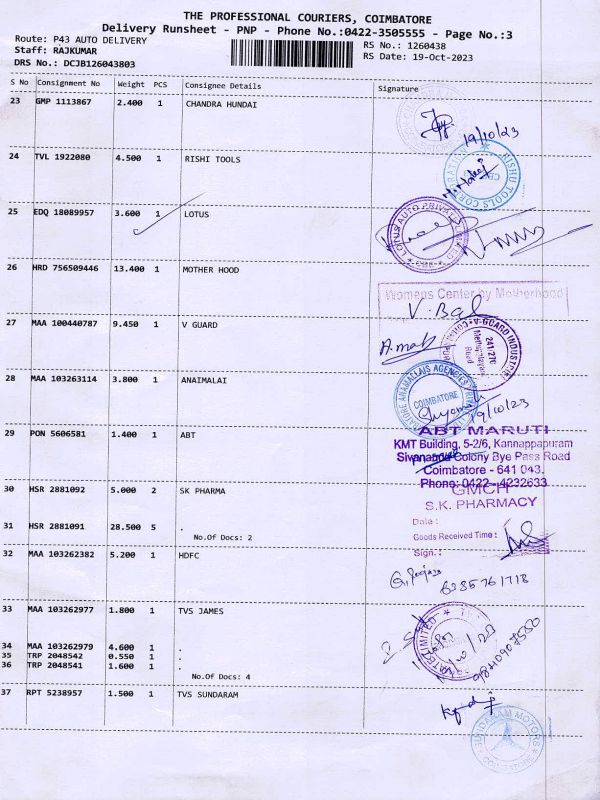 THE PROFESSIONAL COURIERS, COIMBATORE
Delivery Runsheet - PNP - Phone No.:0422-3505555 - Page No.:3
Route: P43 AUTO DELIVERY
RS No.: 1260438
Staff: RAJKUMAR
RS Date: 19-Oct-2023
DRS No.: DCJB126043803
S No Consignment No Weight PCS Consignee Details Signature
23 GMP 1113867 2.400 1 CHANDRA HUNDAI
19/10/23
24 TVL 1922080 4.500 1 RISHI TOOLS
25 EDQ 18089957 3.600 1 LOTUS
LOTUS AUTO PRIVATE
26 HRD 756509446 13.400 1 MOTHER HOOD
Womens Center by Motherhood
27 MAA 100440787 9.450 1 V GUARD
V-GUARD INDUSTRIES
241/270
Mettupalayam
Road
28 MAA 103263114 3.800 1 ANAIMALAI
COIMBATORE
19/10/23
29 PON 5606581 1.400 1 ABT
ABT MARUTI
KMT Building, 5-2/6, Kannappapuram
Sivananda Colony Bye Pass Road
Coimbatore - 641 043.
Phone: 0422 - 4232633
30 HSR 2881092 5.000 2 SK PHARMA
GMCH
S.K. PHARMACY
31 HSR 2881091 28.500 5 .
No.Of Docs: 2
Date :
Goods Received Time :
Sign. :
32 MAA 103262382 5.200 1 HDFC
6385761718
33 MAA 103262977 1.800 1 TVS JAMES
34 MAA 103262979 4.600 1 .
35 TRP 2048542 0.550 1 .
36 TRP 2048541 1.600 1 .
No.Of Docs: 4
37 RPT 5238957 1.500 1 TVS SUNDARAM
SUNDARAM MOTORS